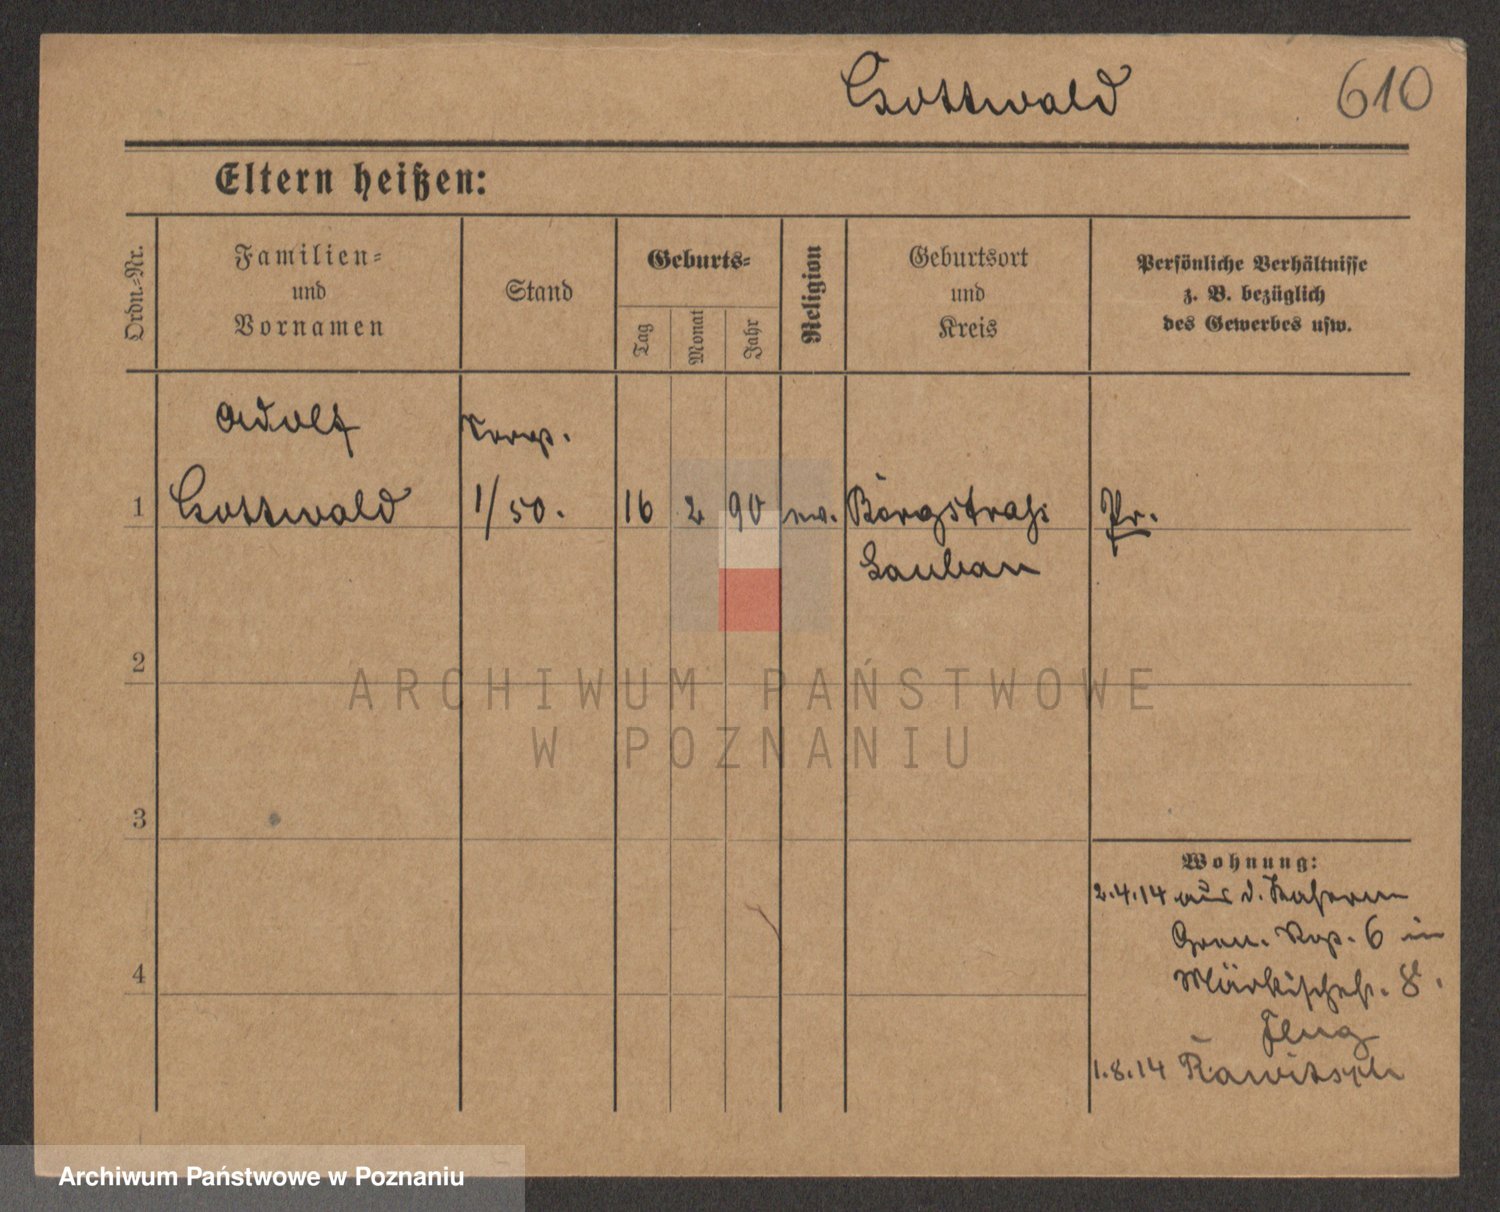 Gottwald
610
Eltern heißen:
Ordn.-Nr.
Familien-
und
Vornamen
Stand
Geburts-
Tag
Monat
Jahr
Religion
Geburtsort
und
Kreis
Persönliche Verhältnisse
z. B. bezüglich
des Gewerbes usw.
Adolf
1 Gottwald 1/50. 16 2 90 ev. Pr.
Lauban
2
3
4
Wohnung:
2.4.14 aus d. Kaserne
Gren. 6 in
Märkischestr. 8.
1.8.14 Rawitsch
ARCHIWUM PAŃSTWOWE
W POZNANIU
Archiwum Państwowe w Poznaniu